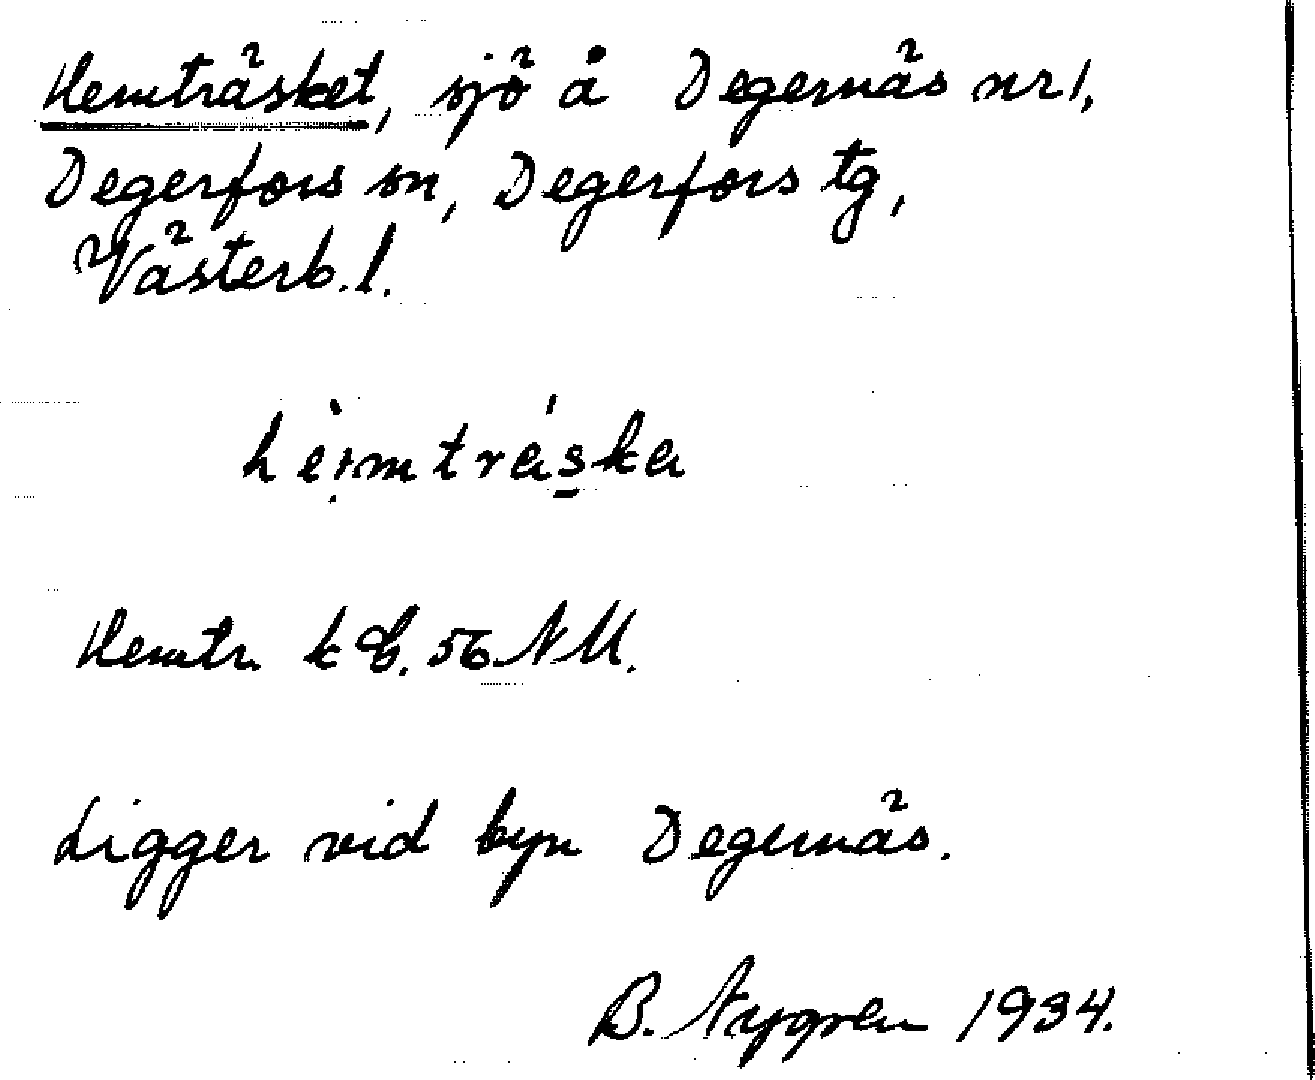 Hemträsket, sjö å Degernäs nr 1,
Degerfors sn, Degerfors tg,
Västerb. l.
Hemtr. k G. 56 NM.
Ligger vid byn Degernäs.
B. Nygren 1934.